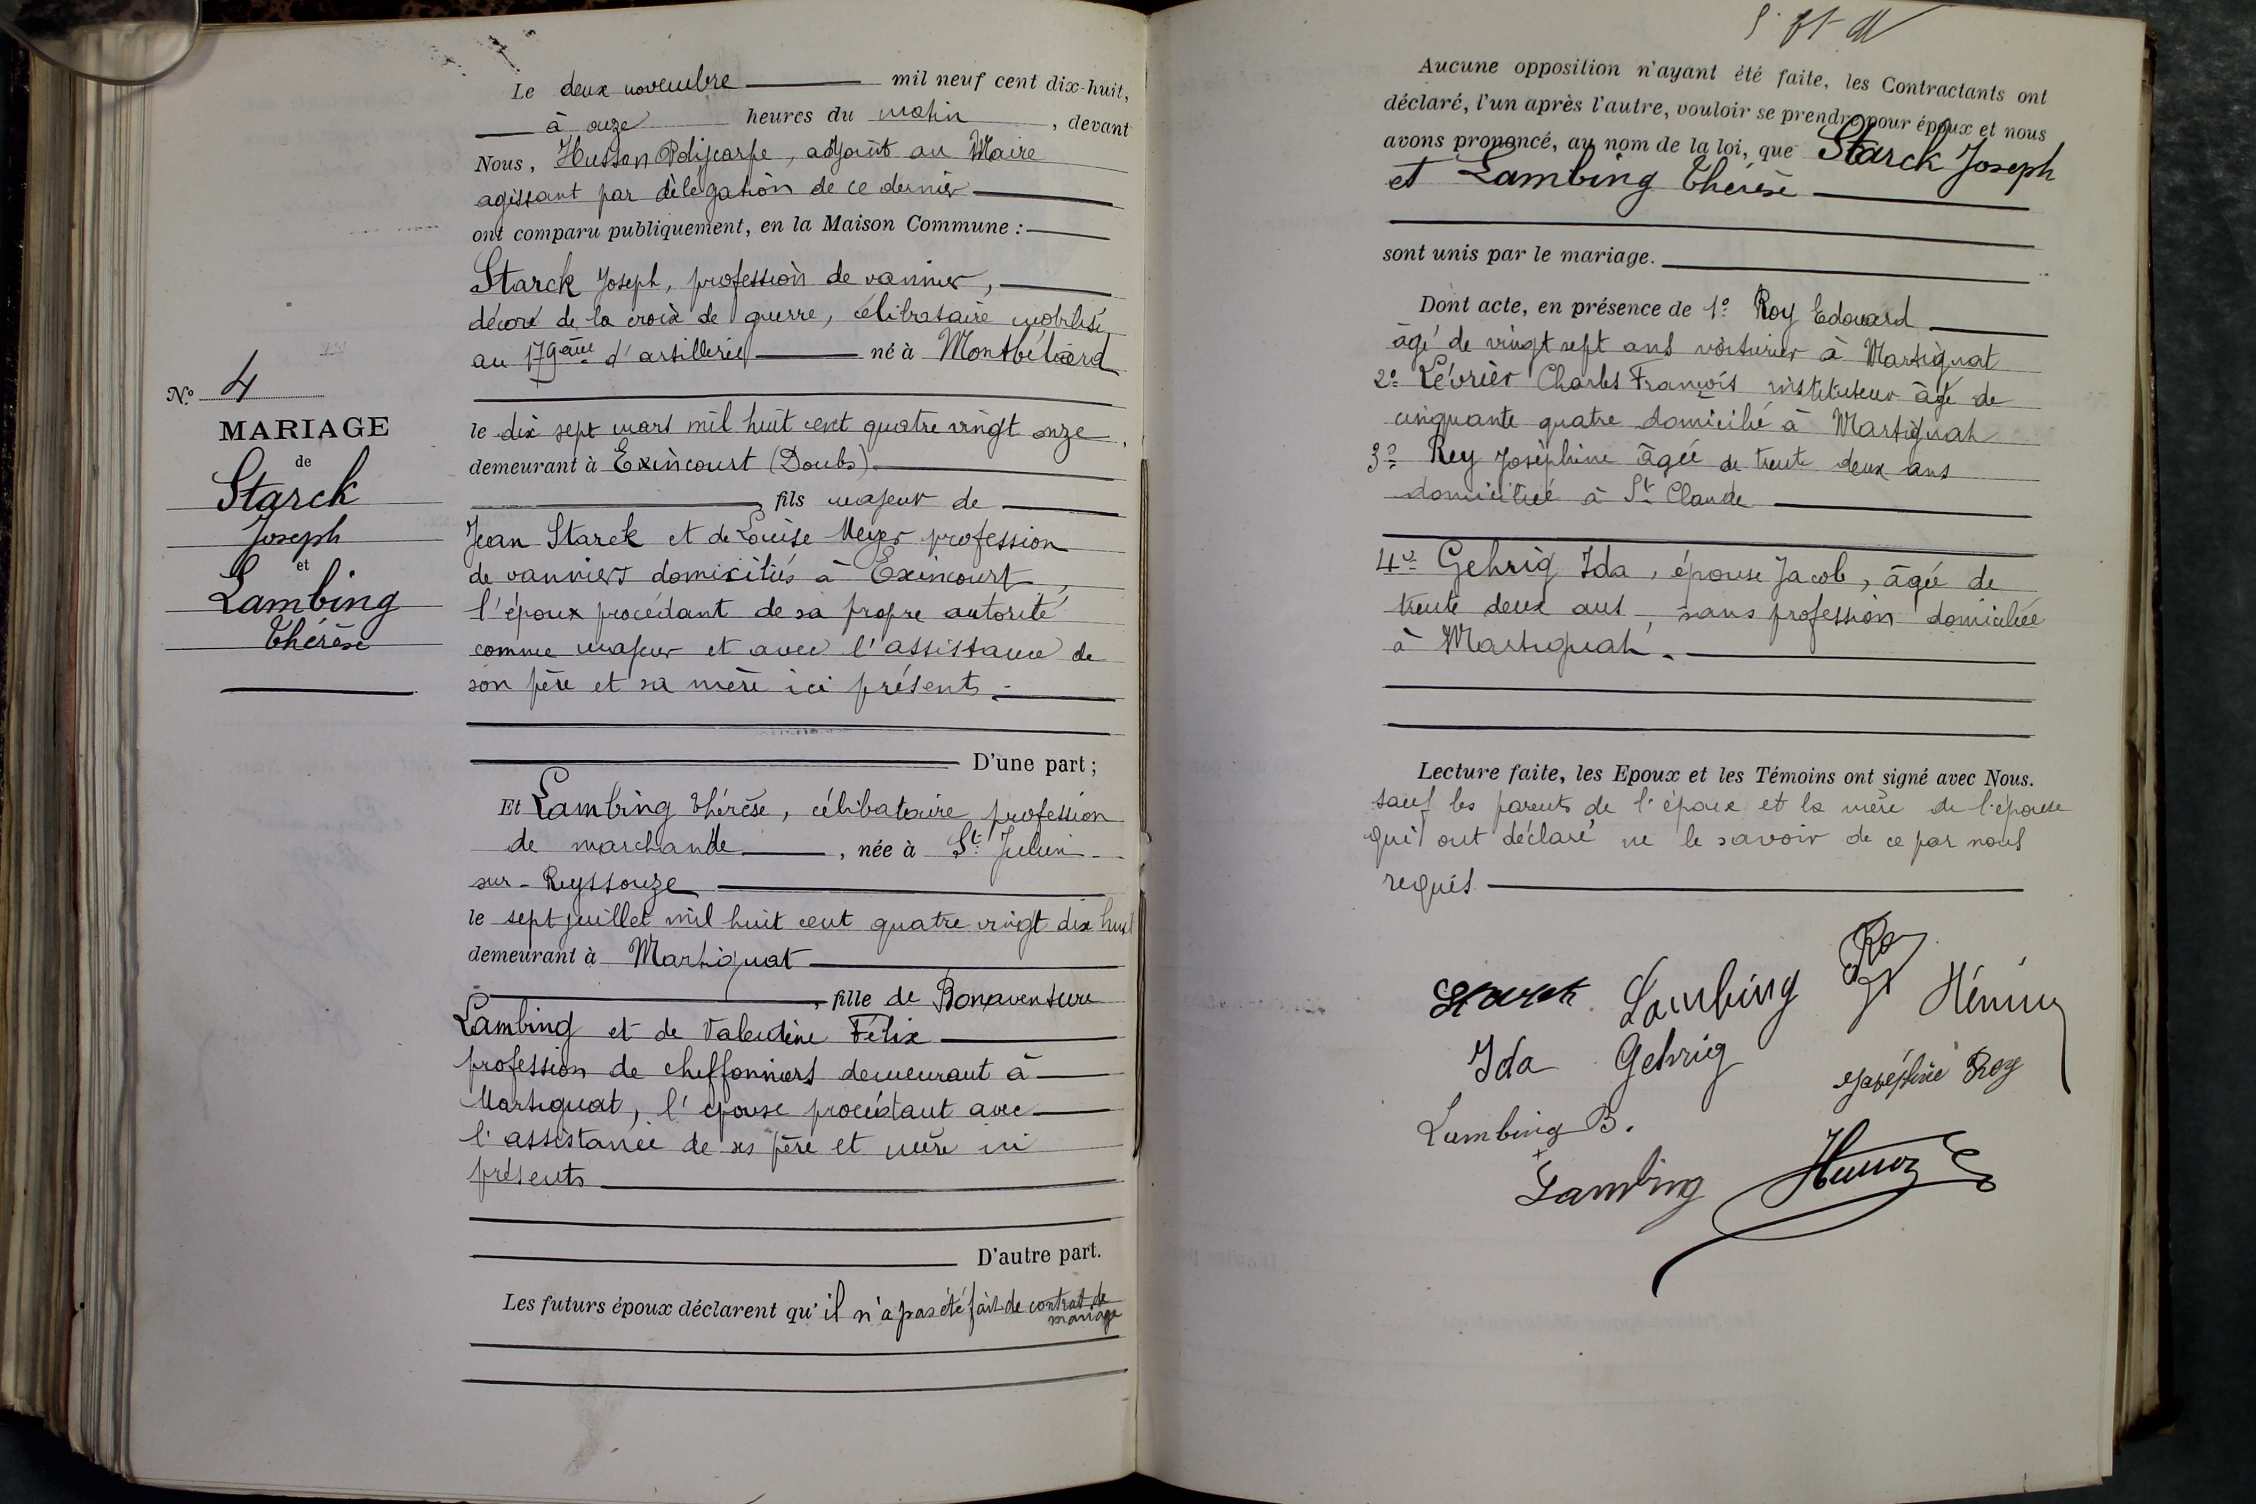 Le deux novembre mil neuf cent dix-huit,
à onze heures du matin, devant
Nous, Husson Polycarpe, adjoint au Maire
agissant par délégation de ce dernier
ont comparu publiquement, en la Maison Commune :
Starck Joseph, profession de vannier,
décoré de la croix de guerre, célibataire mobilisé
au 179ème d'artillerie né à Montbéliard
N° 4
MARIAGE
de
Starck
Joseph
et
Lambing
Thérèse
le dix sept mars mil huit cent quatre vingt onze,
demeurant à Exincourt (Doubs)
, fils majeur de
Jean Starck et de Louise Meyer profession
de vanniers domiciliés à Exincourt,
l'époux procédant de sa propre autorité
comme majeur et avec l'assistance de
son père et sa mère ici présents -
D'une part ;
Et Lambing Thérèse, célibataire profession
de marchande, née à St Julien-
sur-Reyssouze
le sept juillet mil huit cent quatre vingt dix huit
demeurant à Martignat
, fille de Bonaventure
Lambing et de Valentine Félix
profession de cheffonniers demeurant à
Martignat, l'épouse procédant avec
l'assistance de ses père et mère ici
présents
D'autre part.
Les futurs époux déclarent qu'il n'a pas été fait de contrat de
mariage
Aucune opposition n'ayant été faite, les Contractants ont
déclaré, l'un après l'autre, vouloir se prendre pour époux et nous
avons prononcé, au nom de la loi, que Starck Joseph
et Lambing Thérèse
sont unis par le mariage.
Dont acte, en présence de 1° Roy Edouard
âgé de vingt sept ans voiturier à Martignat
2° Lévrier Charles François instituteur âgé de
cinquante quatre domicilié à Martignat
3° Rey Joséphine âgée de trente deux ans
domiciliée à St Claude
4° Gehrig Ida, épouse Jacob, âgée de
trente deux ans, sans profession domiciliée
à Martignat.
Lecture faite, les Epoux et les Témoins ont signé avec Nous.
sauf les parents de l'époux et la mère de l'épouse
qui ont déclaré ne le savoir de ce par nous
requis.
Starck Lambing Roy
Ida Gehrig Joséphine Rey
Lambing B.
Lambing Husson